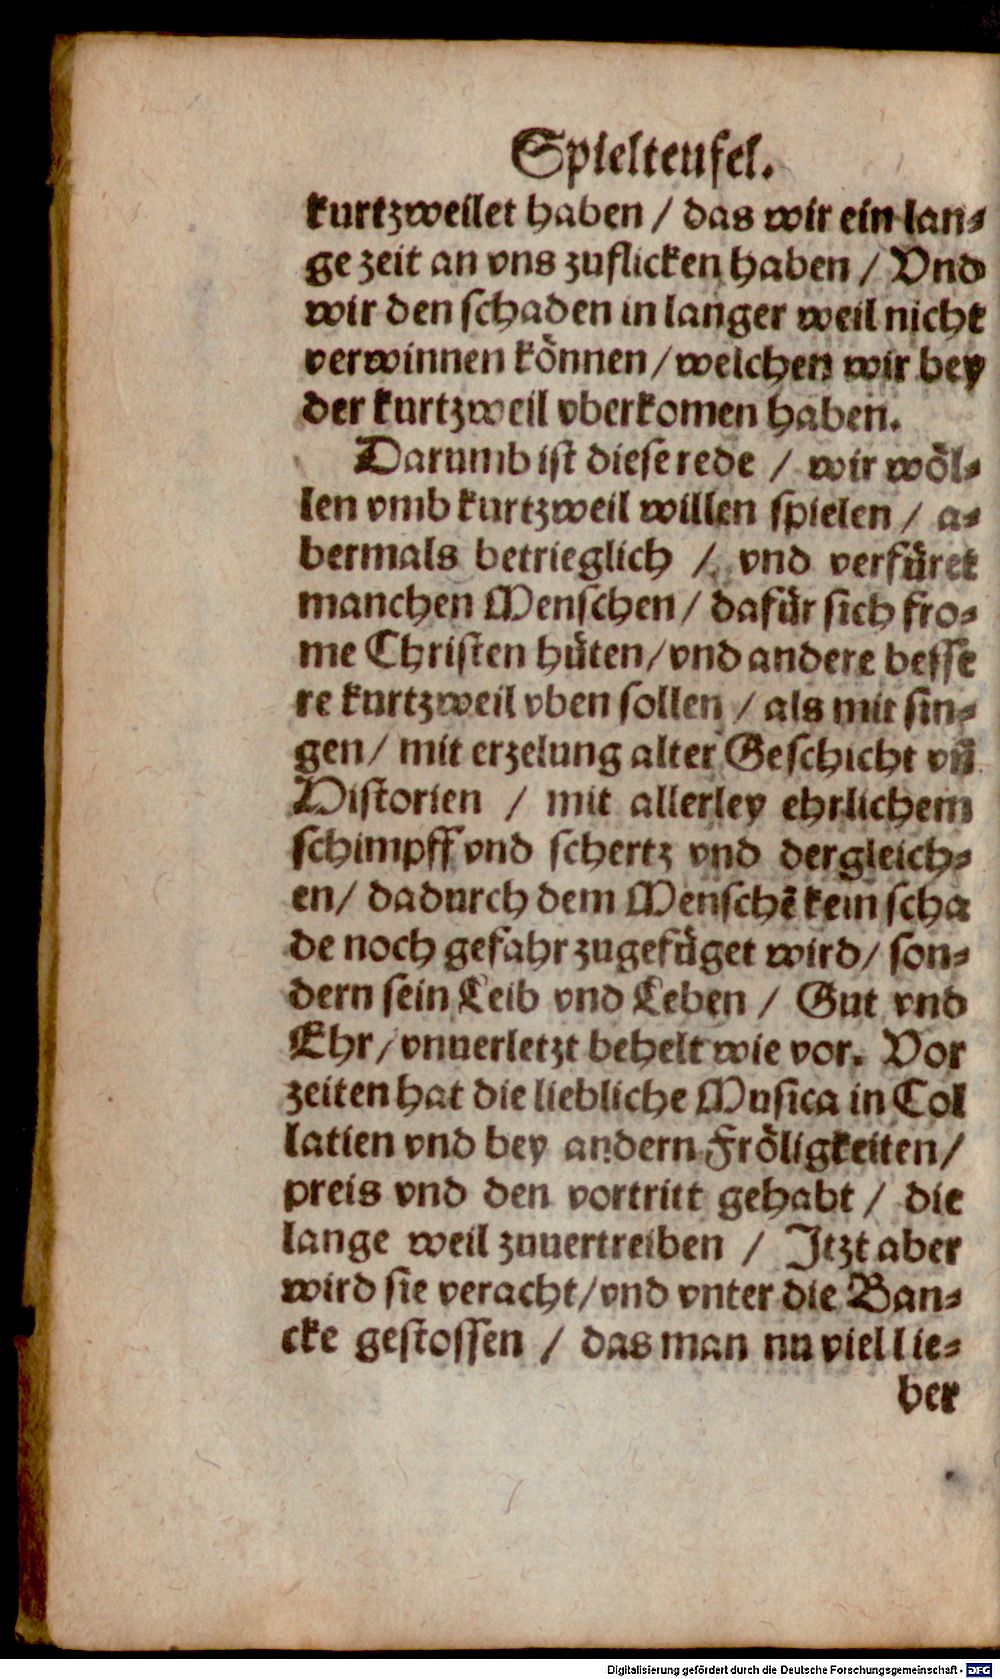 Spielteufel.
kurtzweilet haben / das wir ein lan⸗
ge zeit an vns zuflicken haben / Vnd
wir den schaden in langer weil nicht
verwinnen können / welchen wir bey
der kurtzweil vberkomen haben.
Darumb ist diese rede / wir wöl⸗
len vmb kurtzweil willen spielen / a⸗
bermals betrieglich / vnd verfüret
manchen Menschen / dafür sich fro⸗
me Christen hüten / vnd andere besse
re kurtzweil vben sollen / als mit sin⸗
gen / mit erzelung alter Geschicht vn̄
Historien / mit allerley ehrlichem
schimpff vnd schertz vnd dergleich⸗
en / dadurch dem Menschē kein scha
de noch gefahr zugefüget wird / son⸗
dern sein Leib vnd Leben / Gut vnd
Ehr / vnuerletzt behelt wie vor. Vor
zeiten hat die liebliche Musica in Col
latien vnd bey andern Fröligkeiten /
preis vnd den vortritt gehabt / die
lange weil zuuertreiben / Jtzt aber
wird sie veracht / vnd vnter die Ban⸗
cke gestossen / das man nu viel lie⸗
ber
Digitalisierung gefördert durch die Deutsche Forschungsgemeinschaft - DFG